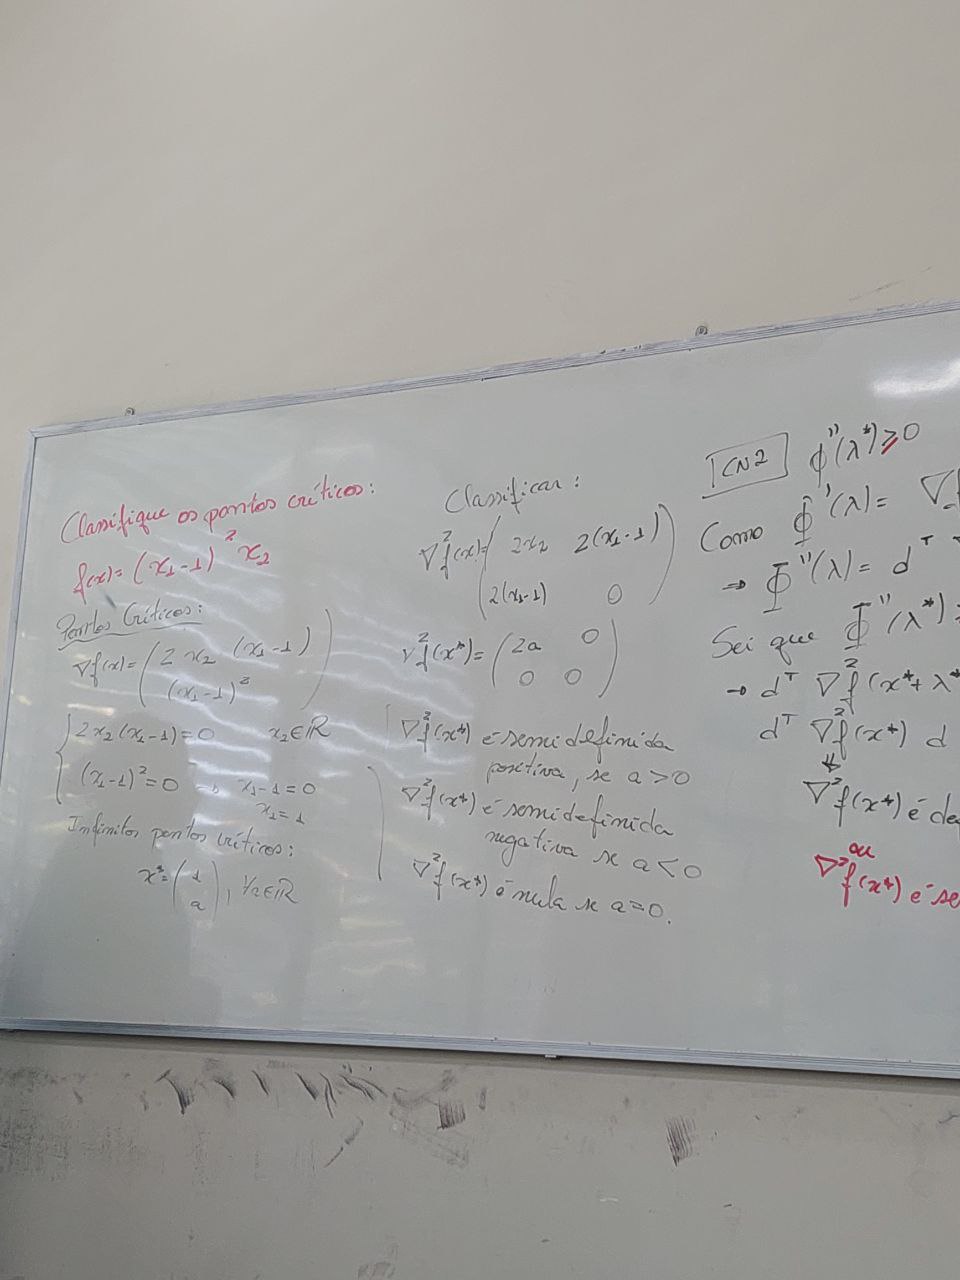 Classifique os pontos críticos:
f(x)= (x₁-1)² x₂
Pontos Críticos:
∇f(x)= (2 x₂ (x₁-1)
(x₁-1)²)
{ 2x₂(x₁-1)=0 x₂∈ℝ
(x₁-1)²=0 → x₁-1=0
x₁=1
Infinitos pontos críticos:
x*= (1
a), ∈ℝ
Classificar:
∇²f(x)= (2x₂ 2(x₁-1)
2(x₁-1) 0)
∇²f(x*)= (2a 0
0 0)
∇²f(x*) é semidefinida
positiva, se a>0
∇²f(x*) é semidefinida
negativa se a<0
∇²f(x*) é nula se a=0.
CN2 ϕ''(λ*)≥0
Como Φ'(λ)= ∇f
→ Φ''(λ)= dᵀ ∇
Sei que Φ''(λ*)≥
→ dᵀ ∇²f(x*+λ*
dᵀ ∇²f(x*) d
⇓
∇²f(x*) é de
ou
∇²f(x*) é se